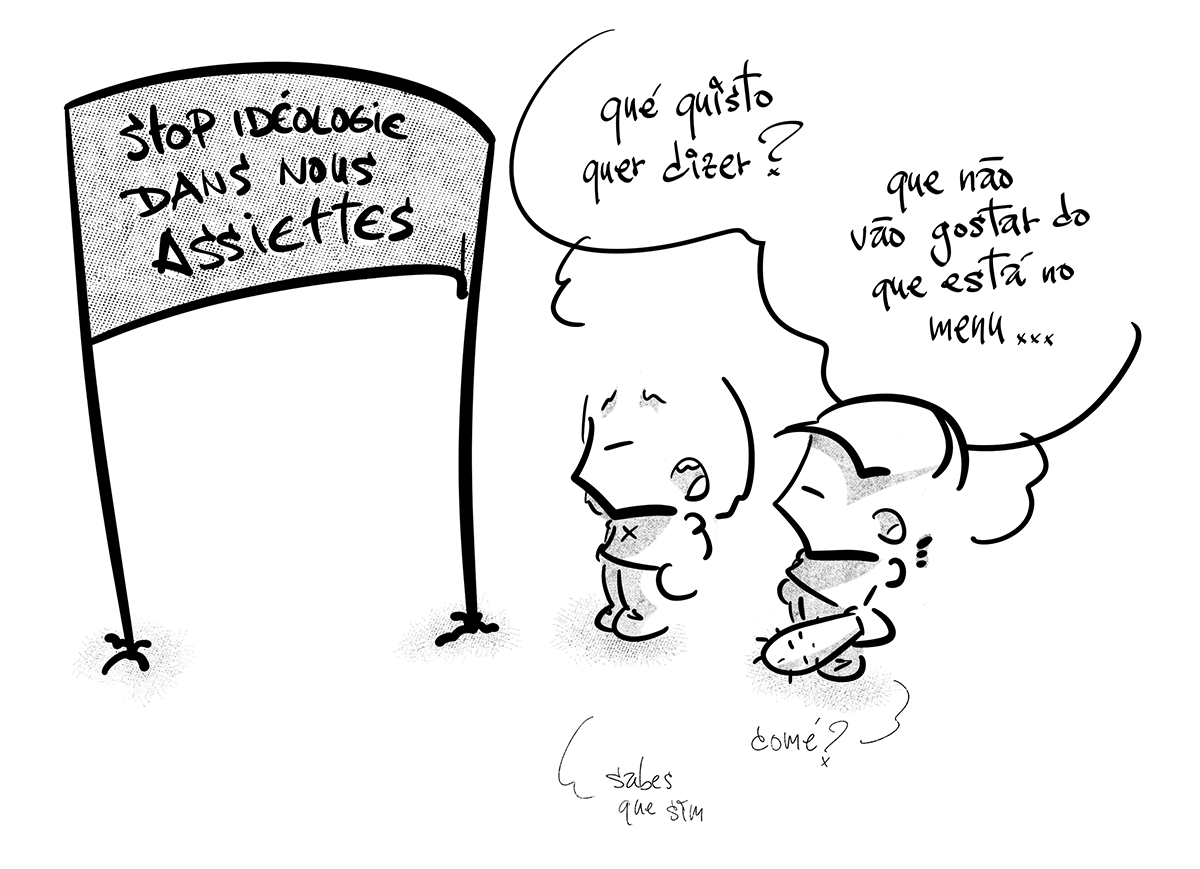 STOP IDÉOLOGIE
DANS NOUS
ASSIETTES
qué quisto
quer dizer?
que não
vão gostar do
que está no
menu...
comé?
sabes
que sim